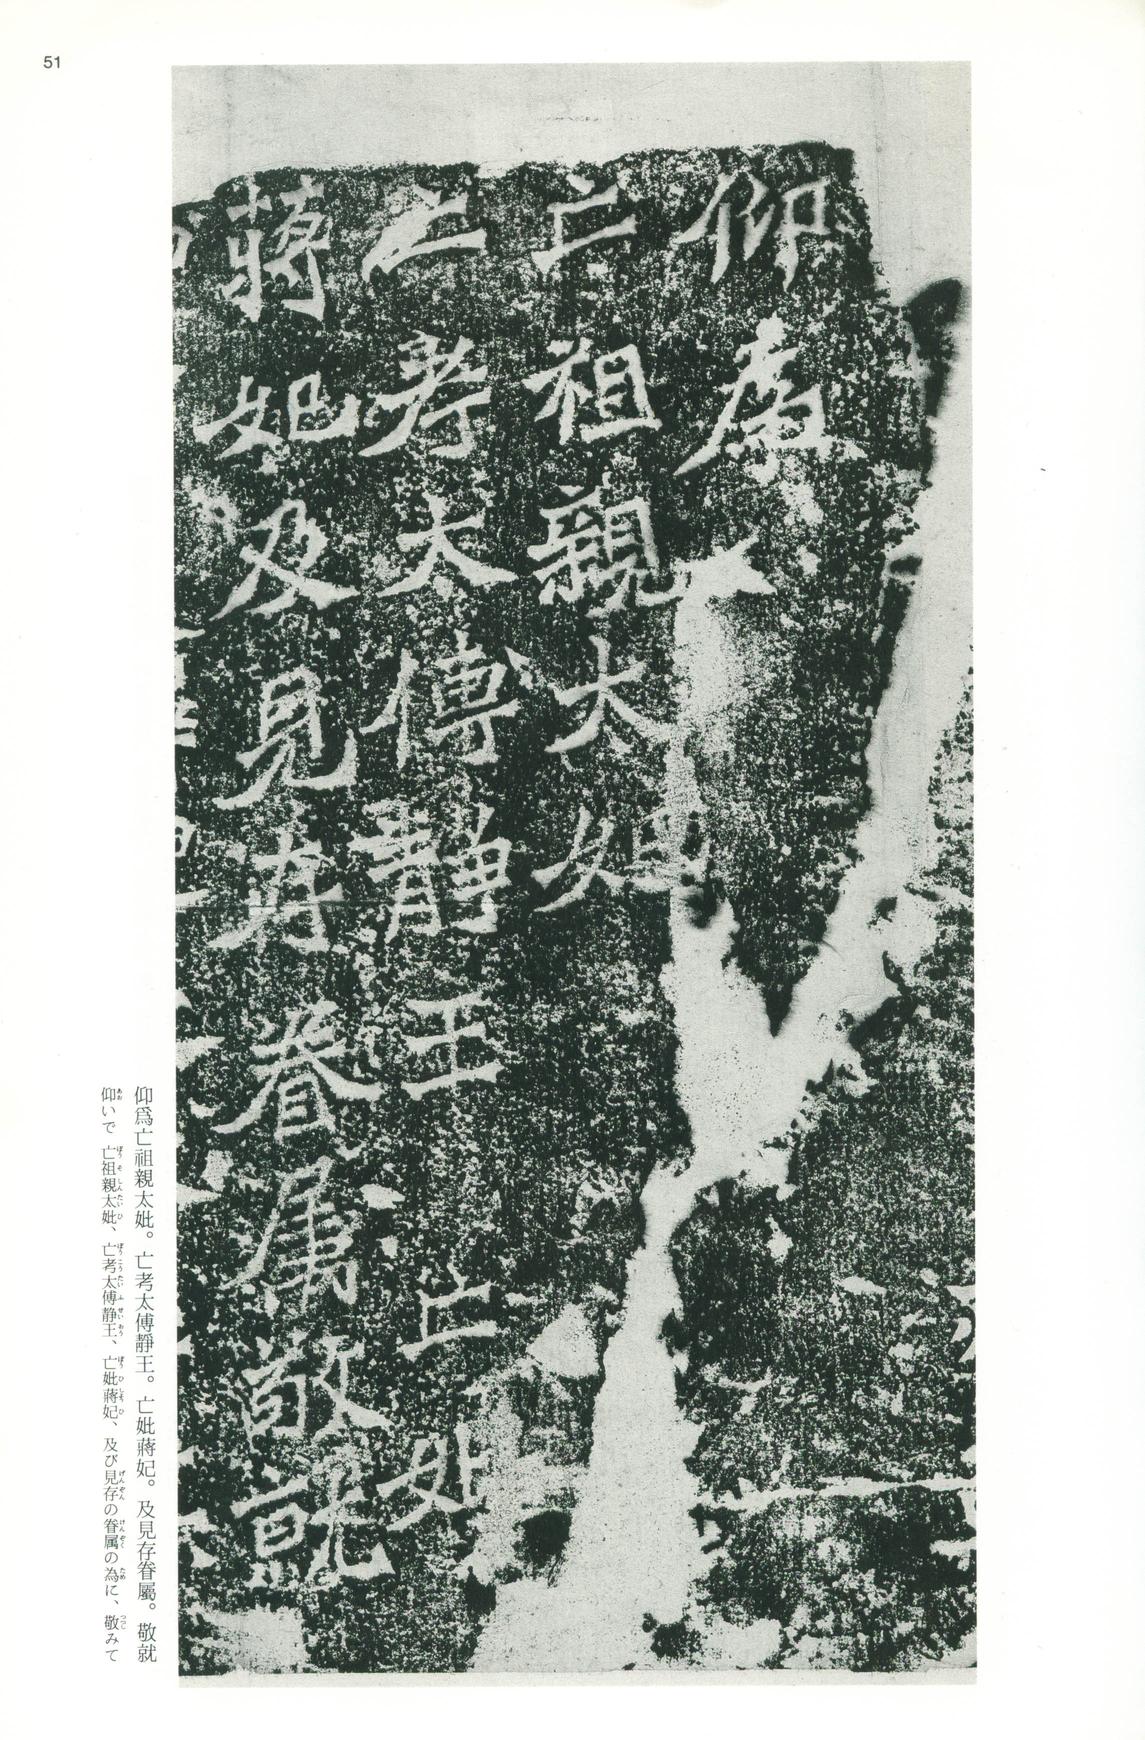 51
仰為
亡祖親大妣
亡考太傅靜王亡妣
蔣妃及見存眷属敬就
仰爲亡祖親太妣。亡考太傅靜王。亡妣蔣妃。及見存眷屬。敬就
仰いで亡祖親太妣、亡考太傅静王、亡妣蔣妃、及び見存の眷属の為に、敬みて